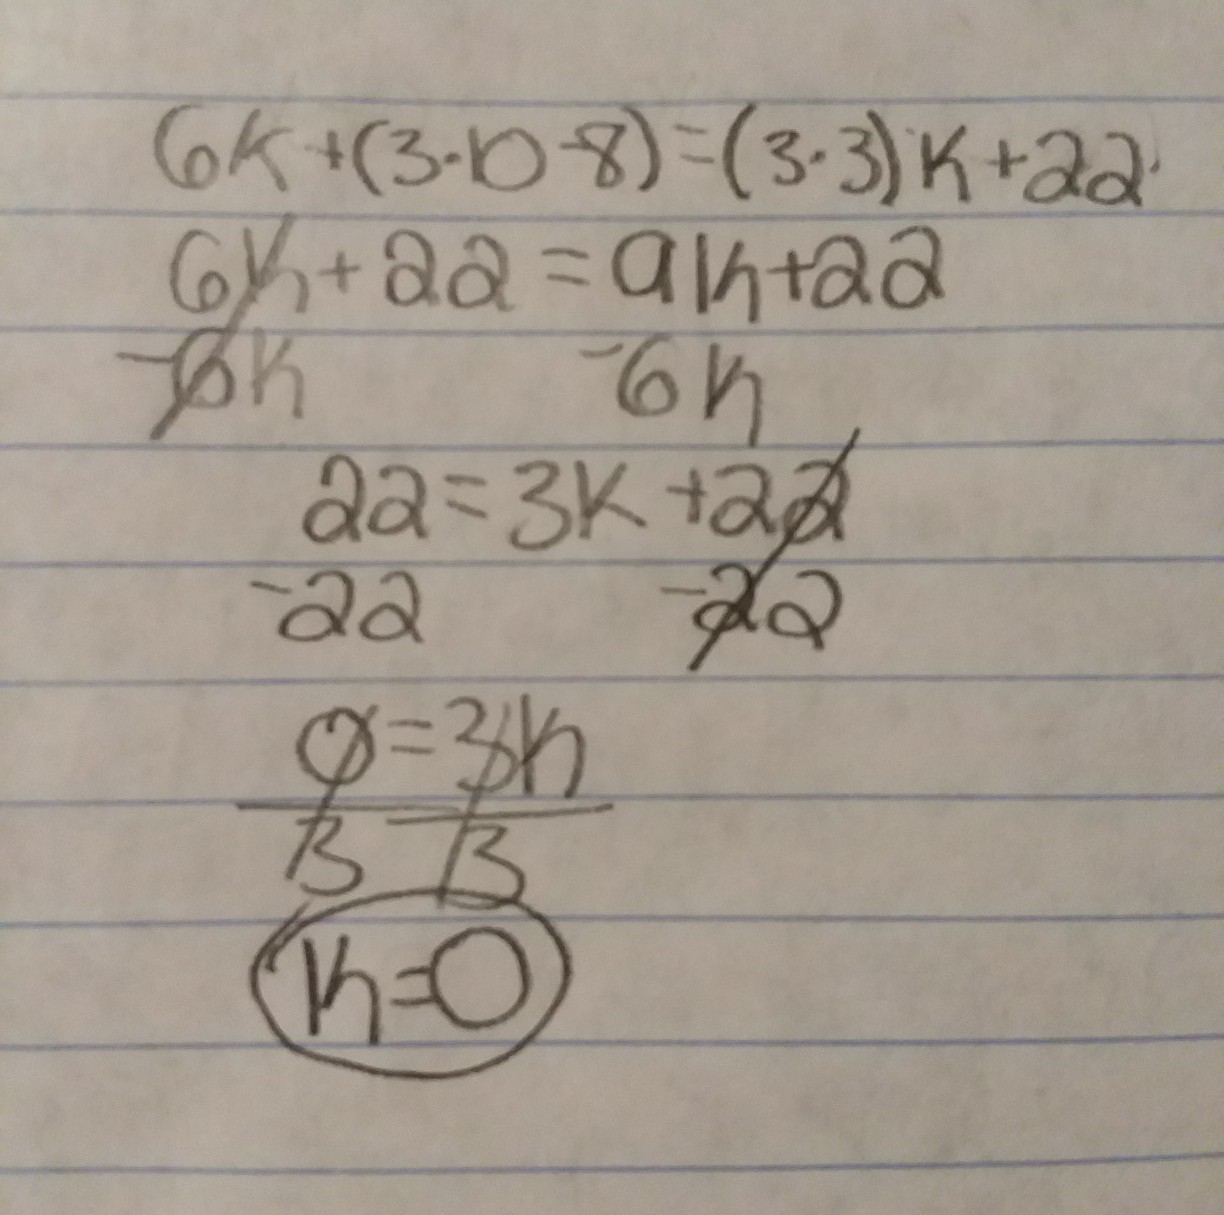 6k+(3·10-8)=(3·3)k+22
6k+22=9k+22
-6k -6k
22=3k+22
-22 -22
0=3k
3 3
k=0